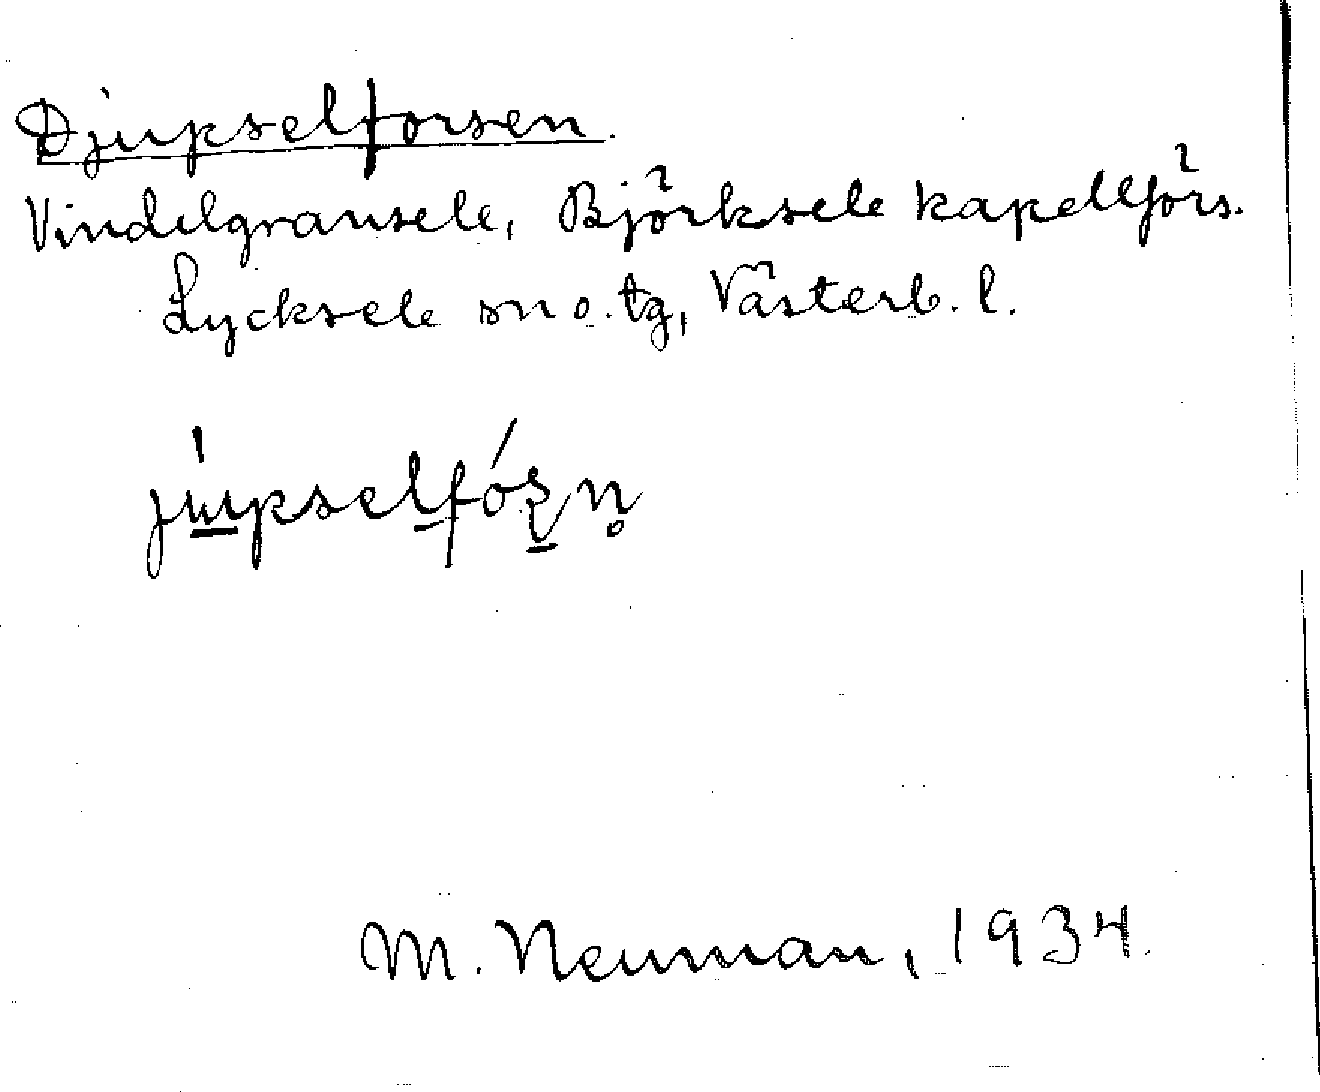 Djupselforsen.
Vindelgransele, Björksele kapellförs.
Lycksele sn o. tg, Västerb. l.
M. Neuman, 1934.